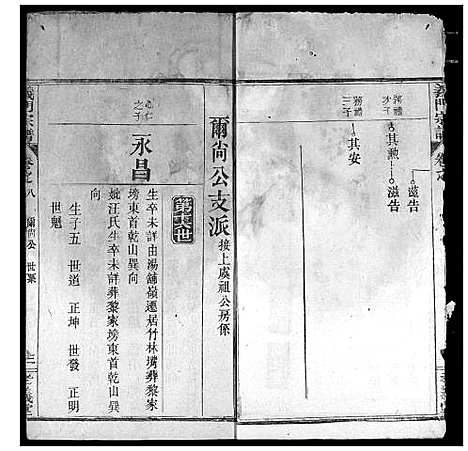 義門宗譜
其勲
滋告
遠告
其安
爾尚公支派
接上虞祖公房係
第六世
心仁之子
永昌
生卒未詳由湯鋪嶺遷居竹林塆葬黎家
塝東首乾山巽向
妣汪氏生卒未詳葬黎家塝東首乾山巽
向
生子五 世道 正坤 世發 正明
世魁
義門宗譜
卷之八 爾尚公 世系
孝義堂